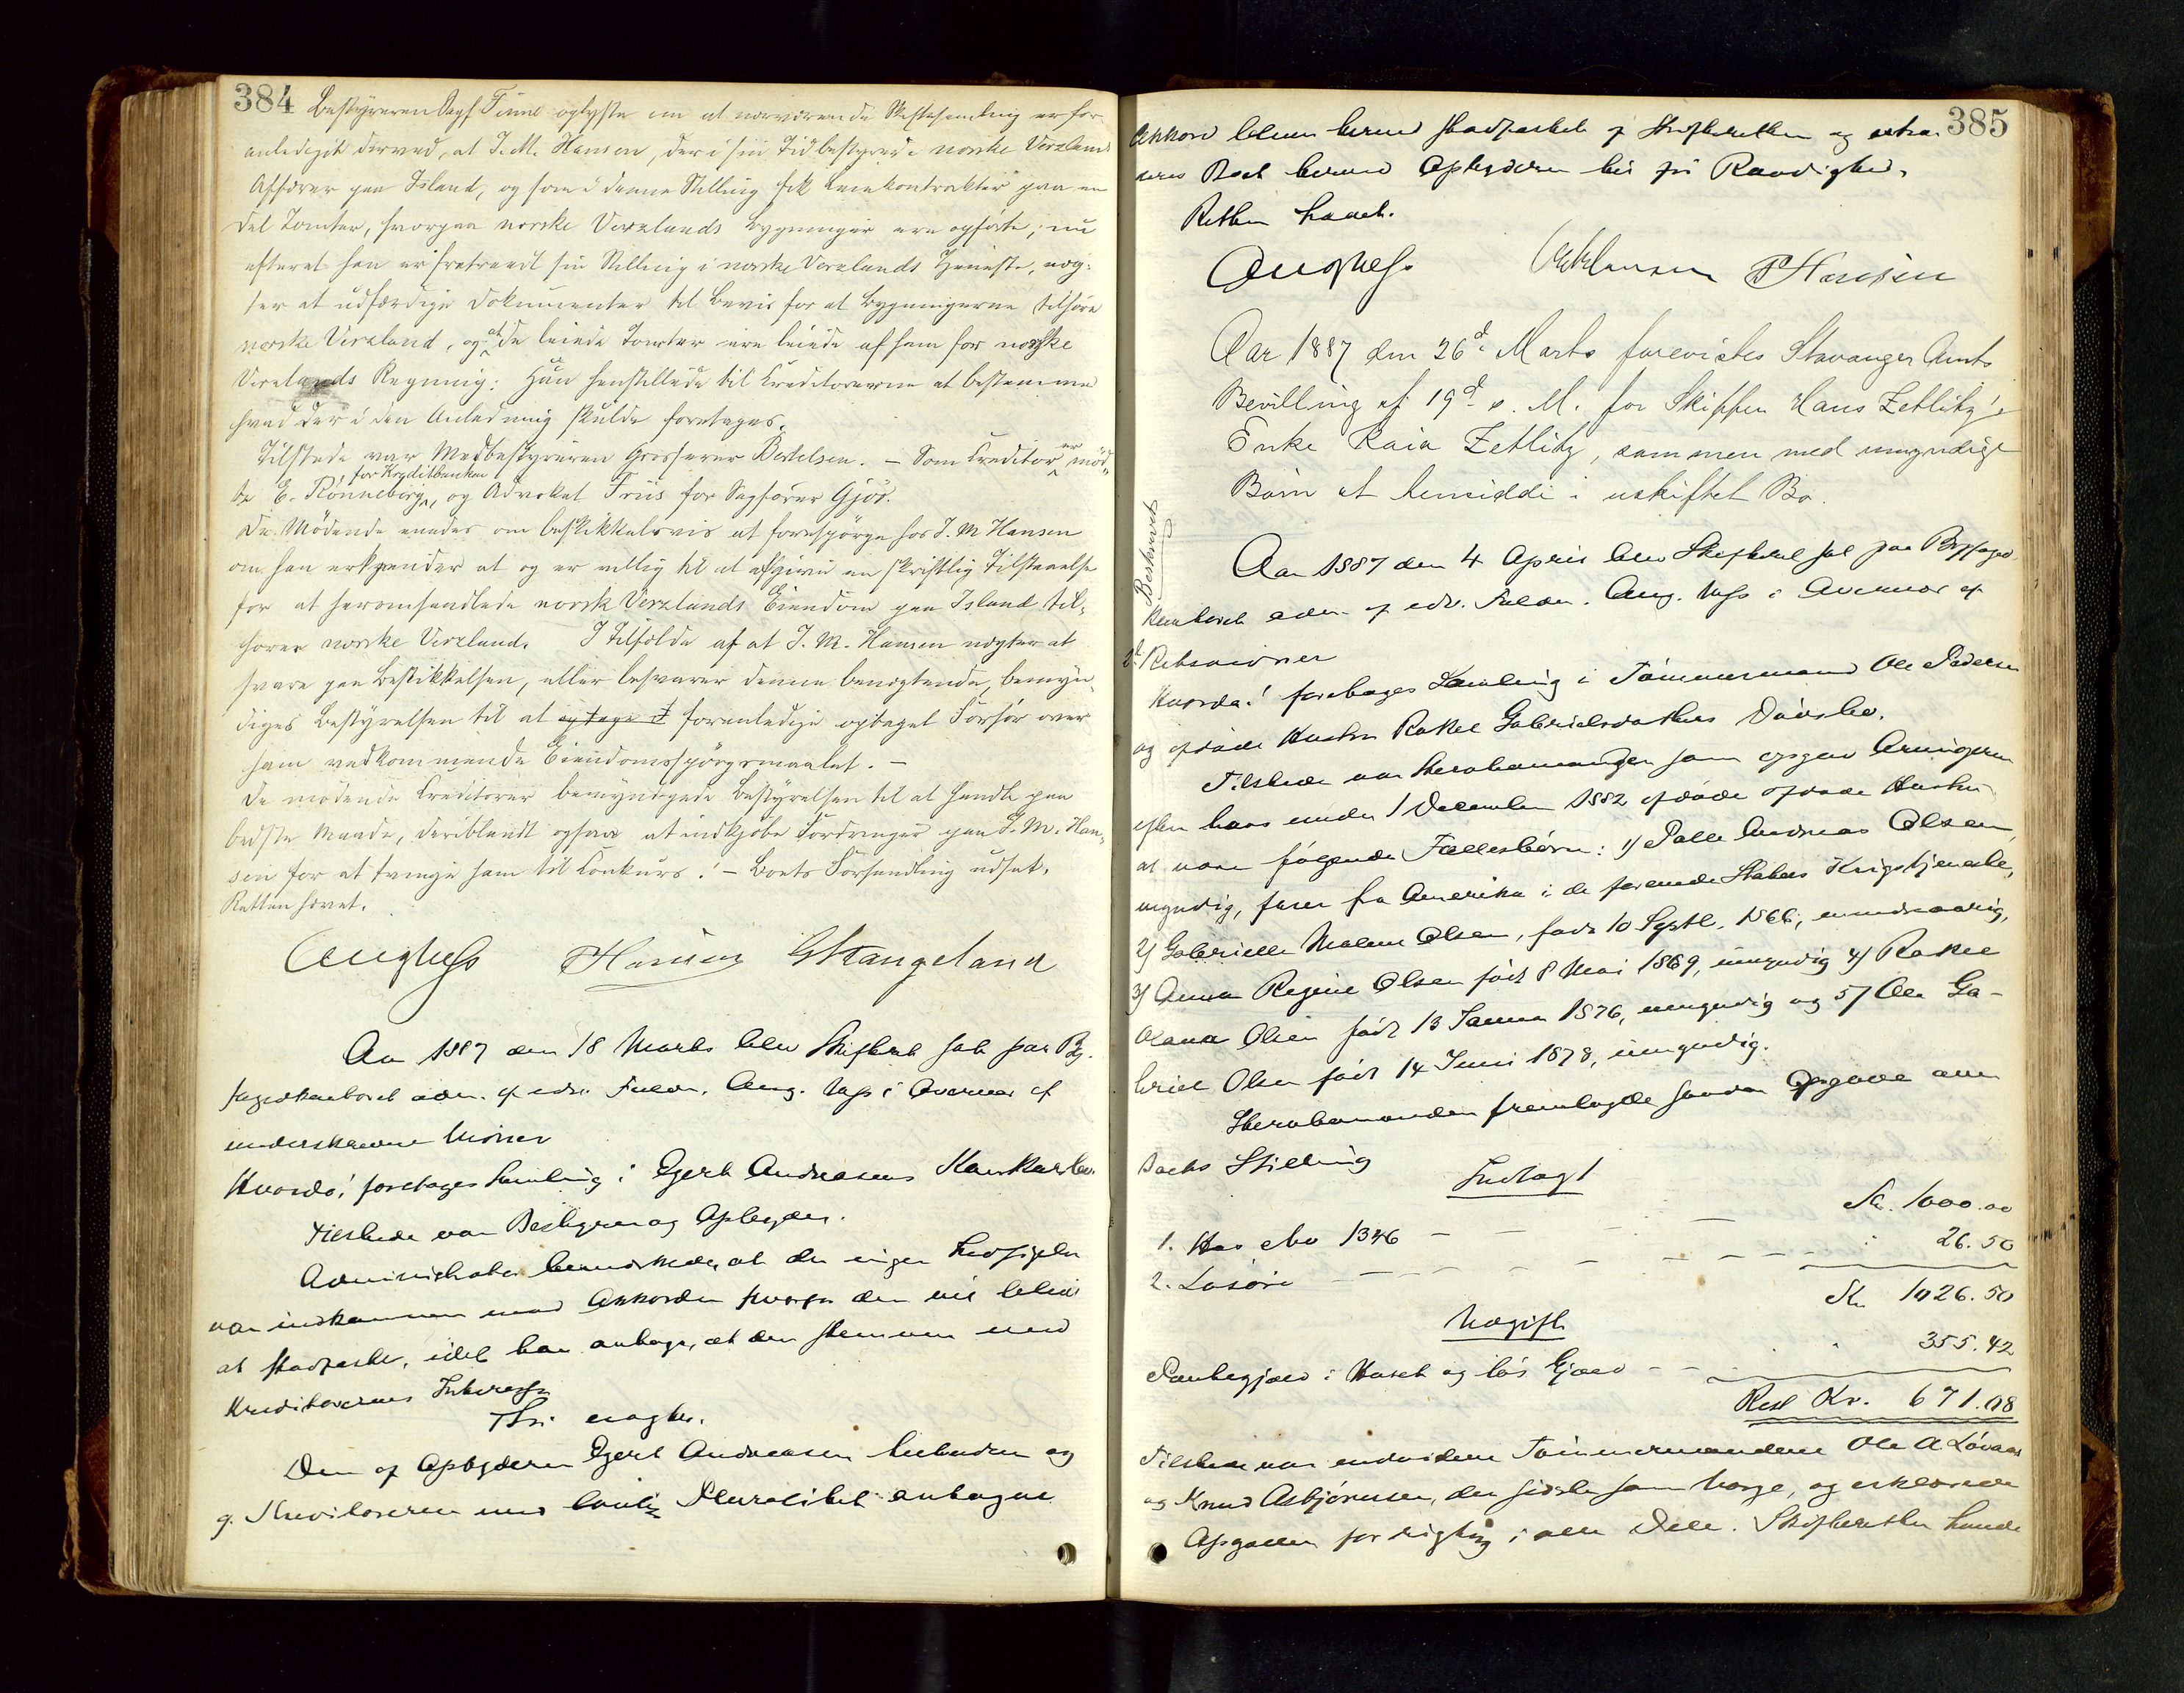 384
Bestyreren Sagf Finne oplyste om at nærværende Skiftesamling er for¬
anlediget derved, at J. M. Hansen, der i sin Tid bestyrede norske Verzlands
Affærer paa Island, og som i denne Stilling fik Leiekontrakter paa en
Del Tomter, hvorpaa norske Verzlands Bygninger ere opførte; nu
efterat han er fratraadt sin Stilling i norske Verzlands Tjeneste, næg¬
ter at udfærdige Dokumenter til Bevis for at Bygningerne tilhøre
norske Verzland, og at de leiede Tomter ere leiede af ham for norske
Verzlands Regning. Han henstillede til Kreditorerne at bestemme
hvad der i den Anledning skulde foretages.
Tilstede var Medbestyreren Grosserer Bertelsen. – Som Kreditor er mød¬
te E. Rønneborg, for Kreditbanken og Advokat Friis for Sagfører Gjør.
De Mødende enedes om beskikkelsvis at forespørge hos J. M Hansen
om han erkjender at og er villig til at afgive en skriftlig Tilstaaelse
for at heromhandlede norsk Verzlands Eiendom paa Island til¬
hører norske Verzland. I Tilfælde af at J. M. Hansen nægter at
svare paa Beskikkelsen, eller besvarer denne benægtende, bemyn¬
diges Bestyrelsen til at optage F foranledige optaget Forhør over
ham vedkommende Eiendomsspørgsmaalet. –
De mødende Kreditorer bemyndigede Bestyrelsen til at handle paa
bedste Maade, deriblandt ogsaa at indkjøbe Fordringer paa J. M. Han¬
sen for at tvinge ham til Konkurs. – Boets Forhandling udsat.
Retten hævet.
Aug Hess PHansen GStangeland
Aar 1887 den 18 Marts blev Skifteret sat paa By¬
fogedkontoret adm. af edsv. Fuldm. Aug. Hess i Overvær af
underskrevne Vidner
Hvorda! foretages Samling i Gjert Andreasens Konkursbo.
Tilstede var Bestyrer og Opbyder.
Administrator bemærkede, at der ingen Indsigelse
var indkommen mod Akkorden hvorfor den vil blive
at stadfæste, idet han antager, at den stemmer med
Kreditorernes Interesse
Thi eragtes.
Den af Opbyderen Gjert Andreasen tilbudne og
af Kreditorerne med lovlig Pluralitet antagne
385
Akkord bliver herved stadfæstet af Skifteretten og extra¬
deres Boet herved Opbyderen til fri Raadighed.
Retten hævet.
Aug Hess PHansen
Aar 1887 den 26d. Marts forevistes Stavanger Amts
Bevilling af 19d. s. M. for Skipper Hans Zetlitz's
Enke Kaia Zetlitz, sammen med umyndige
Børn at hensidde i uskiftet Bo.
Beskrevet
Aar 1887 den 4 April blev Skifteret sat paa Byfoged¬
kontoret adm. af edsv. Fuldm. Aug. Hess i Overvær af
2d. Retsvidner
Hvorda! foretages Samling i Tømmermand Ole Pedersen
og afdøde Hustru Rakel Gabrielsdatters Dødsbo.
Tilstede var Stervbomanden som opgav Arvingerne
efter hans under 1 December 1882 afdøde afdøde Hustru
at være følgende Fællesbørn: 1) Palle Andreas Olsen,
myndig, farer fra Amerika i de forenede Staters Krigstjeneste,
2) Gabrielle Malene Olsen, født 10 Septb. 1866, mindreaarig,
3) Anna Regine Olsen født 8 Mai 1869, umyndig 4) Rakel
Olava Olsen født 13 Januar 1876, umyndig og 5) Ole Ga¬
briel Olsen født 14 Juni 1878, umyndig.
Stervbomanden fremlagde saadan Opgave over
Boets Stilling
Indtægt
1. Hus No 1346 – – – Kr. 1000.00
2. Løsøre – – – – – – " 26.50
Kr. 1026.50
Udgift
Pantegjæld i Huset og løs Gjæld – – " 355.42
Rest Kr. 671.08
Tilstede var endvidere Tømmermændene Ole A Løvaas
og Knud Asbjørnsen, den sidste som Værge, og erklærede
Opgaven for rigtig i alle Dele. Skifteretten havde